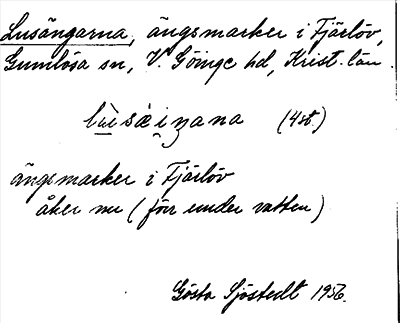 Lusängarna, ängsmarker i Fjärlöv,
Gumlösa sn, V. Göinge hd, Krist. län.
(4st.)
ängsmarker i Fjärlöv
åker nu (förr under vatten)
Gösta Sjöstedt 1956.